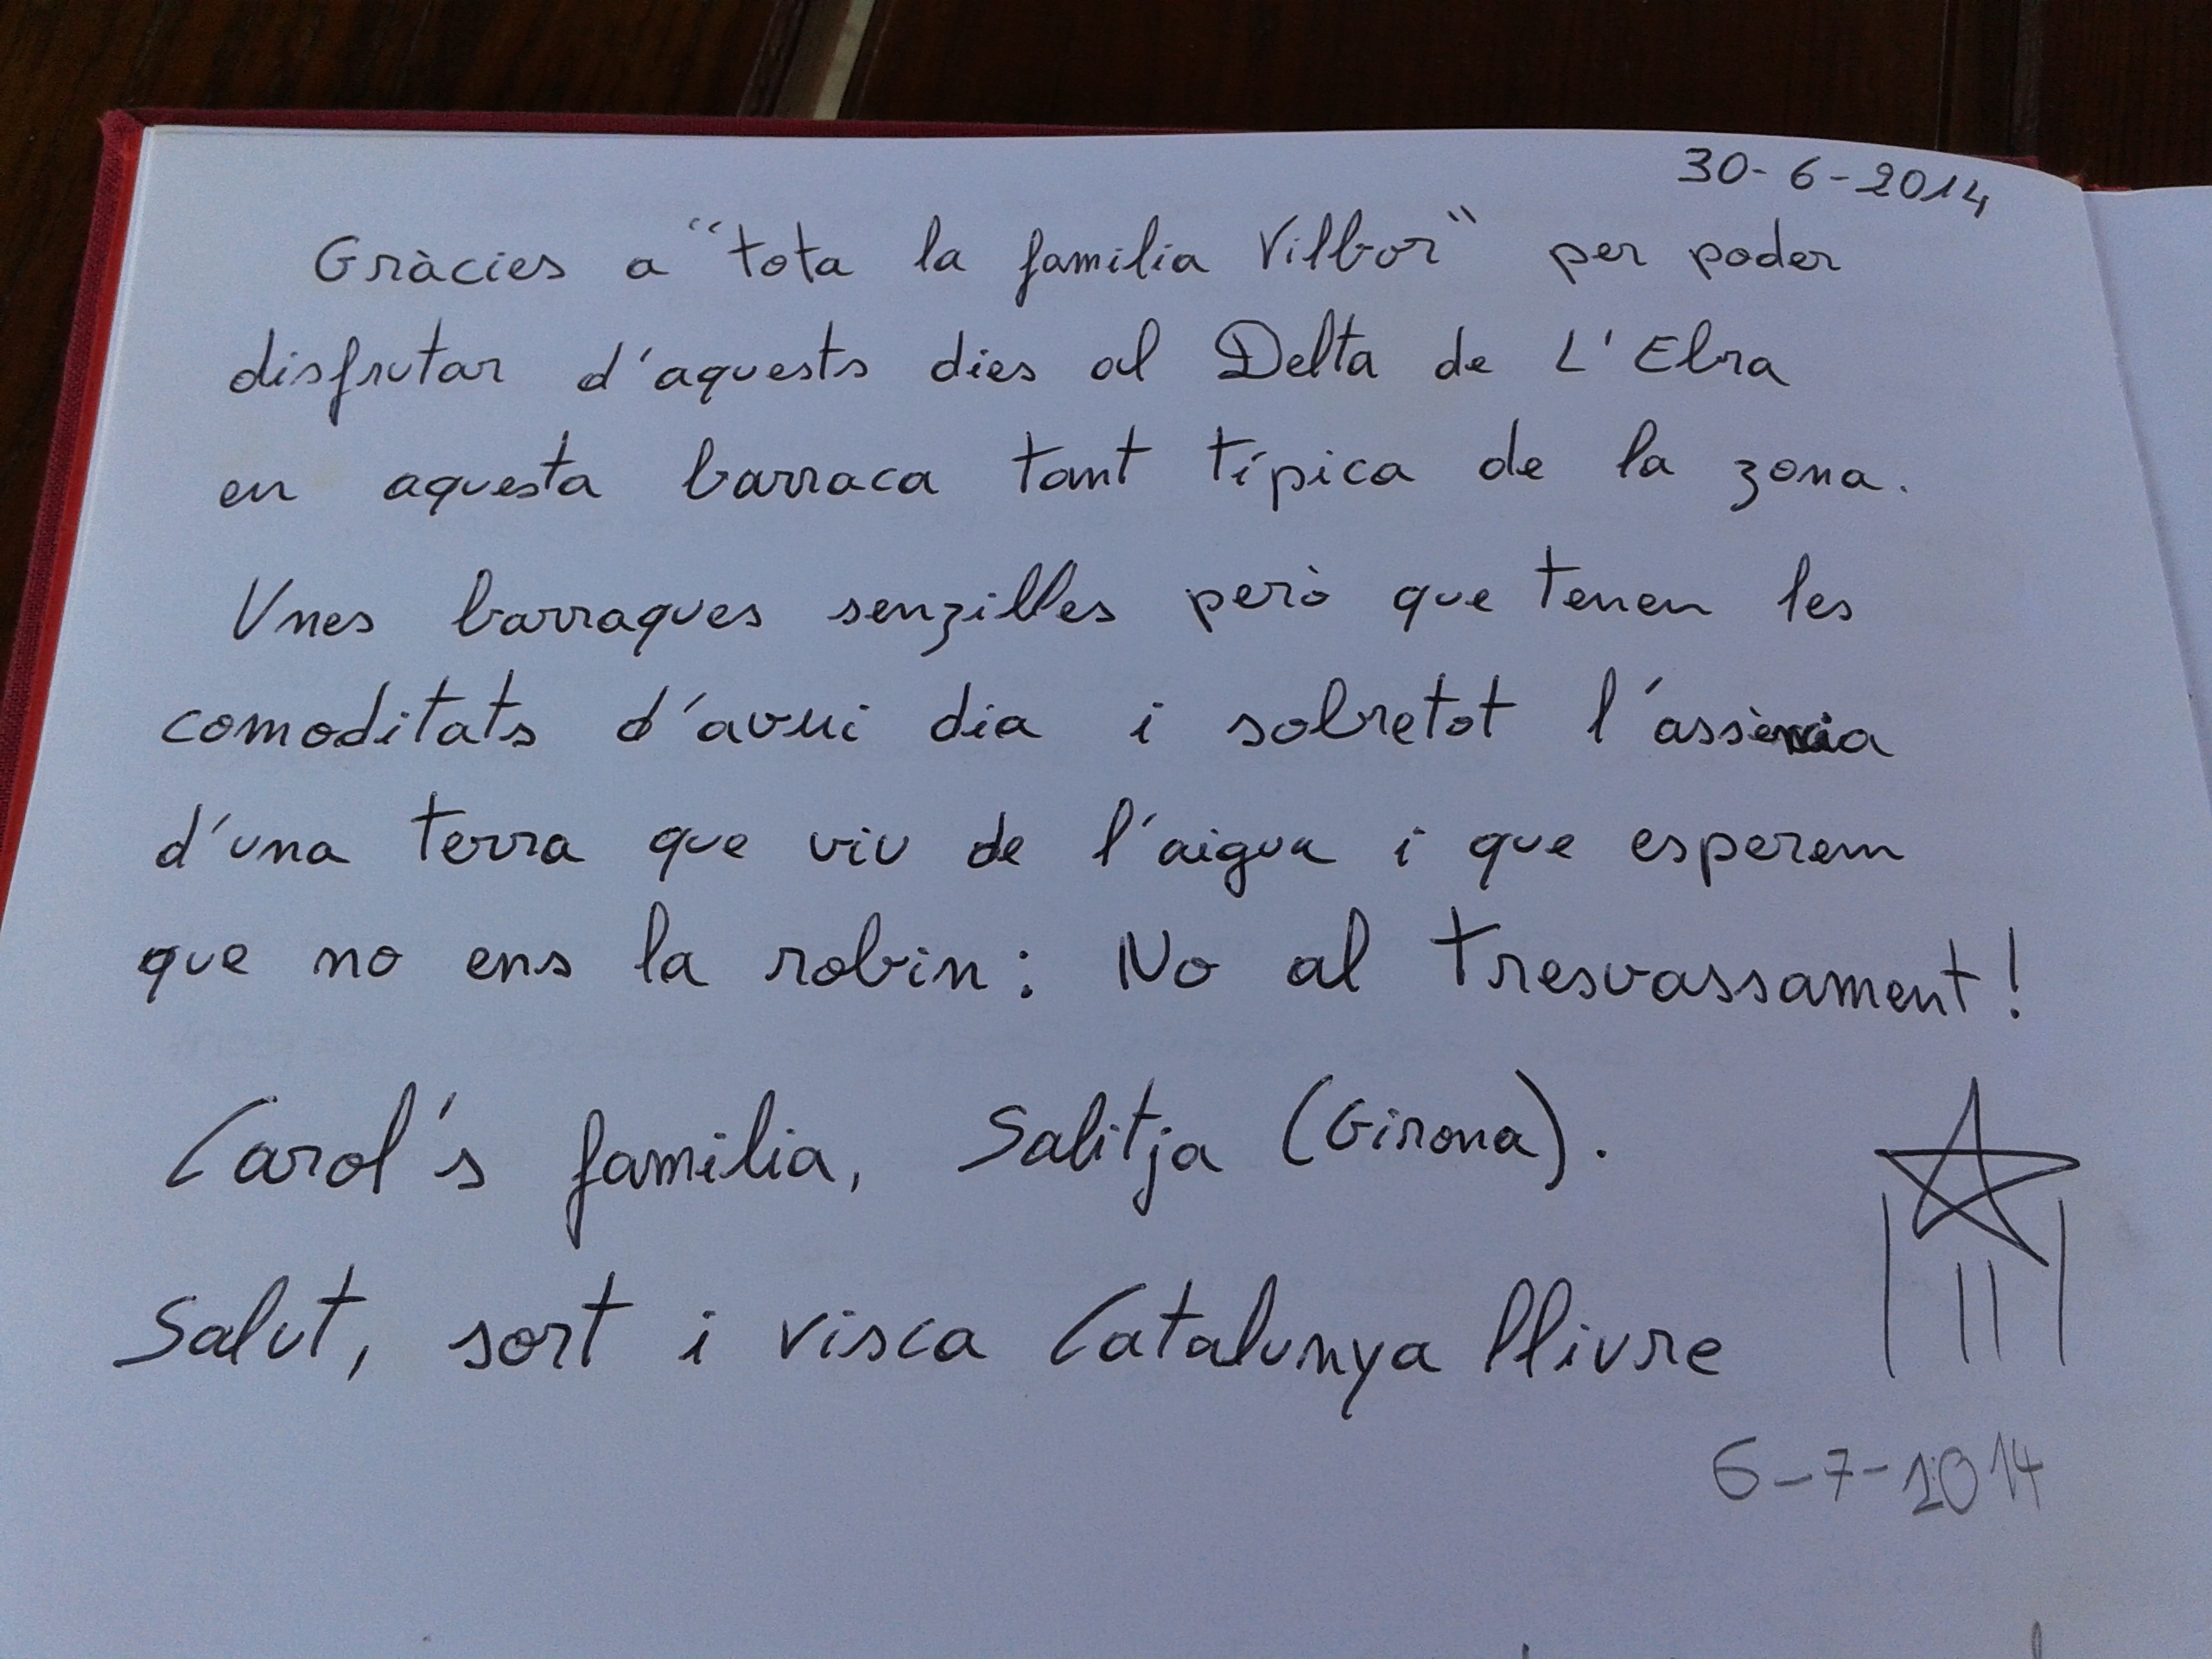 30-6-2014
Gràcies a "tota la familia Vilbor" per poder
disfrutar d'aquests dies al Delta de L'Ebra
en aquesta barraca tant típica de la zona.
Unes barraques senzilles però que tenen les
comoditats d'avui dia i sobretot l'assència
d'una terra que viu de l'aigua i que esperem
que no ens la robin: No al tresvassament!
Carol's familia, Salitja (Girona).
Salut, sort i visca Catalunya llivre
6-7-2014